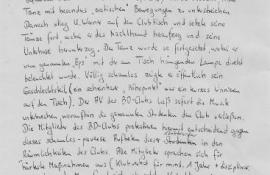 Tanz mit besonders "erotischen" Bewegungen zu unterstreichen
Danach stieg U. Wanna auf den Clubtisch und setzte seine
Tänze fort wobei er das Nachthemd heraufzog und seine
Unterhose herunterzog. Der Tanz wurde so fortgesetzt wobei er
von genannten "Eps" mit der am Tisch hängenden Lampe direkt
beleuchtet wurde. Völlig schamlos zeigte er öffentlich sein
Geschlechtsteil (ein scheinbar "Höhepunkt" war ein kurzes
auf den Tisch). Der AV des BD-Clubs ließ sofort die Musik
unterbrechen den genannten Studenten den Club verlassen
Die Mitglieder des BD-Clubs protestieren hiermit entschieden gegen
dieses schamlos-perverse Auftreten dieses Studenten in den
Räumlichkeiten des Clubs. Alle Mitglieder sprechen sich für
härteste Maßnahmen aus (Klubverbot für mind. 1 Jahr + diszipl.